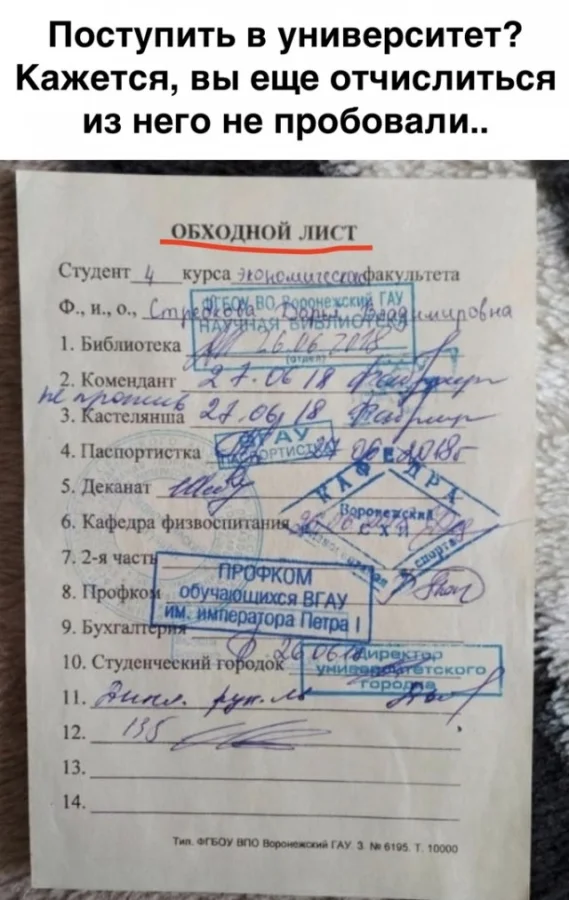 Поступить в университет?
Кажется, вы еще отчислиться
из него не пробовали..
ОБХОДНОЙ ЛИСТ
Студент 4 курса Экономического факультета
Ф., и., о., Владимировна
ФГБОУ ВО Воронежский ГАУ
НАУЧНАЯ БИБЛИОТЕКА
(отдел)
1. Библиотека 26.06.2018
2. Комендант 27.06.18
не против
3. Кастелянша 27.06.18
4. Паспортистка 06.2018г
ВГАУ
ПАСПОРТИСТ
5. Деканат
КАФЕДРА
Воронежская
СХИ
спорта
6. Кафедра физвоспитания
7. 2-я часть
ПРОФКОМ
обучающихся ВГАУ
им. императора Петра I
8. Профком
9. Бухгалтерия
10. Студенческий городок 26.06
Директор
университетского
городка
11. Дипл. рук.
12. 135
13.
14.
Тип. ФГБОУ ВПО Воронежский ГАУ. З. № 6195. Т. 10000